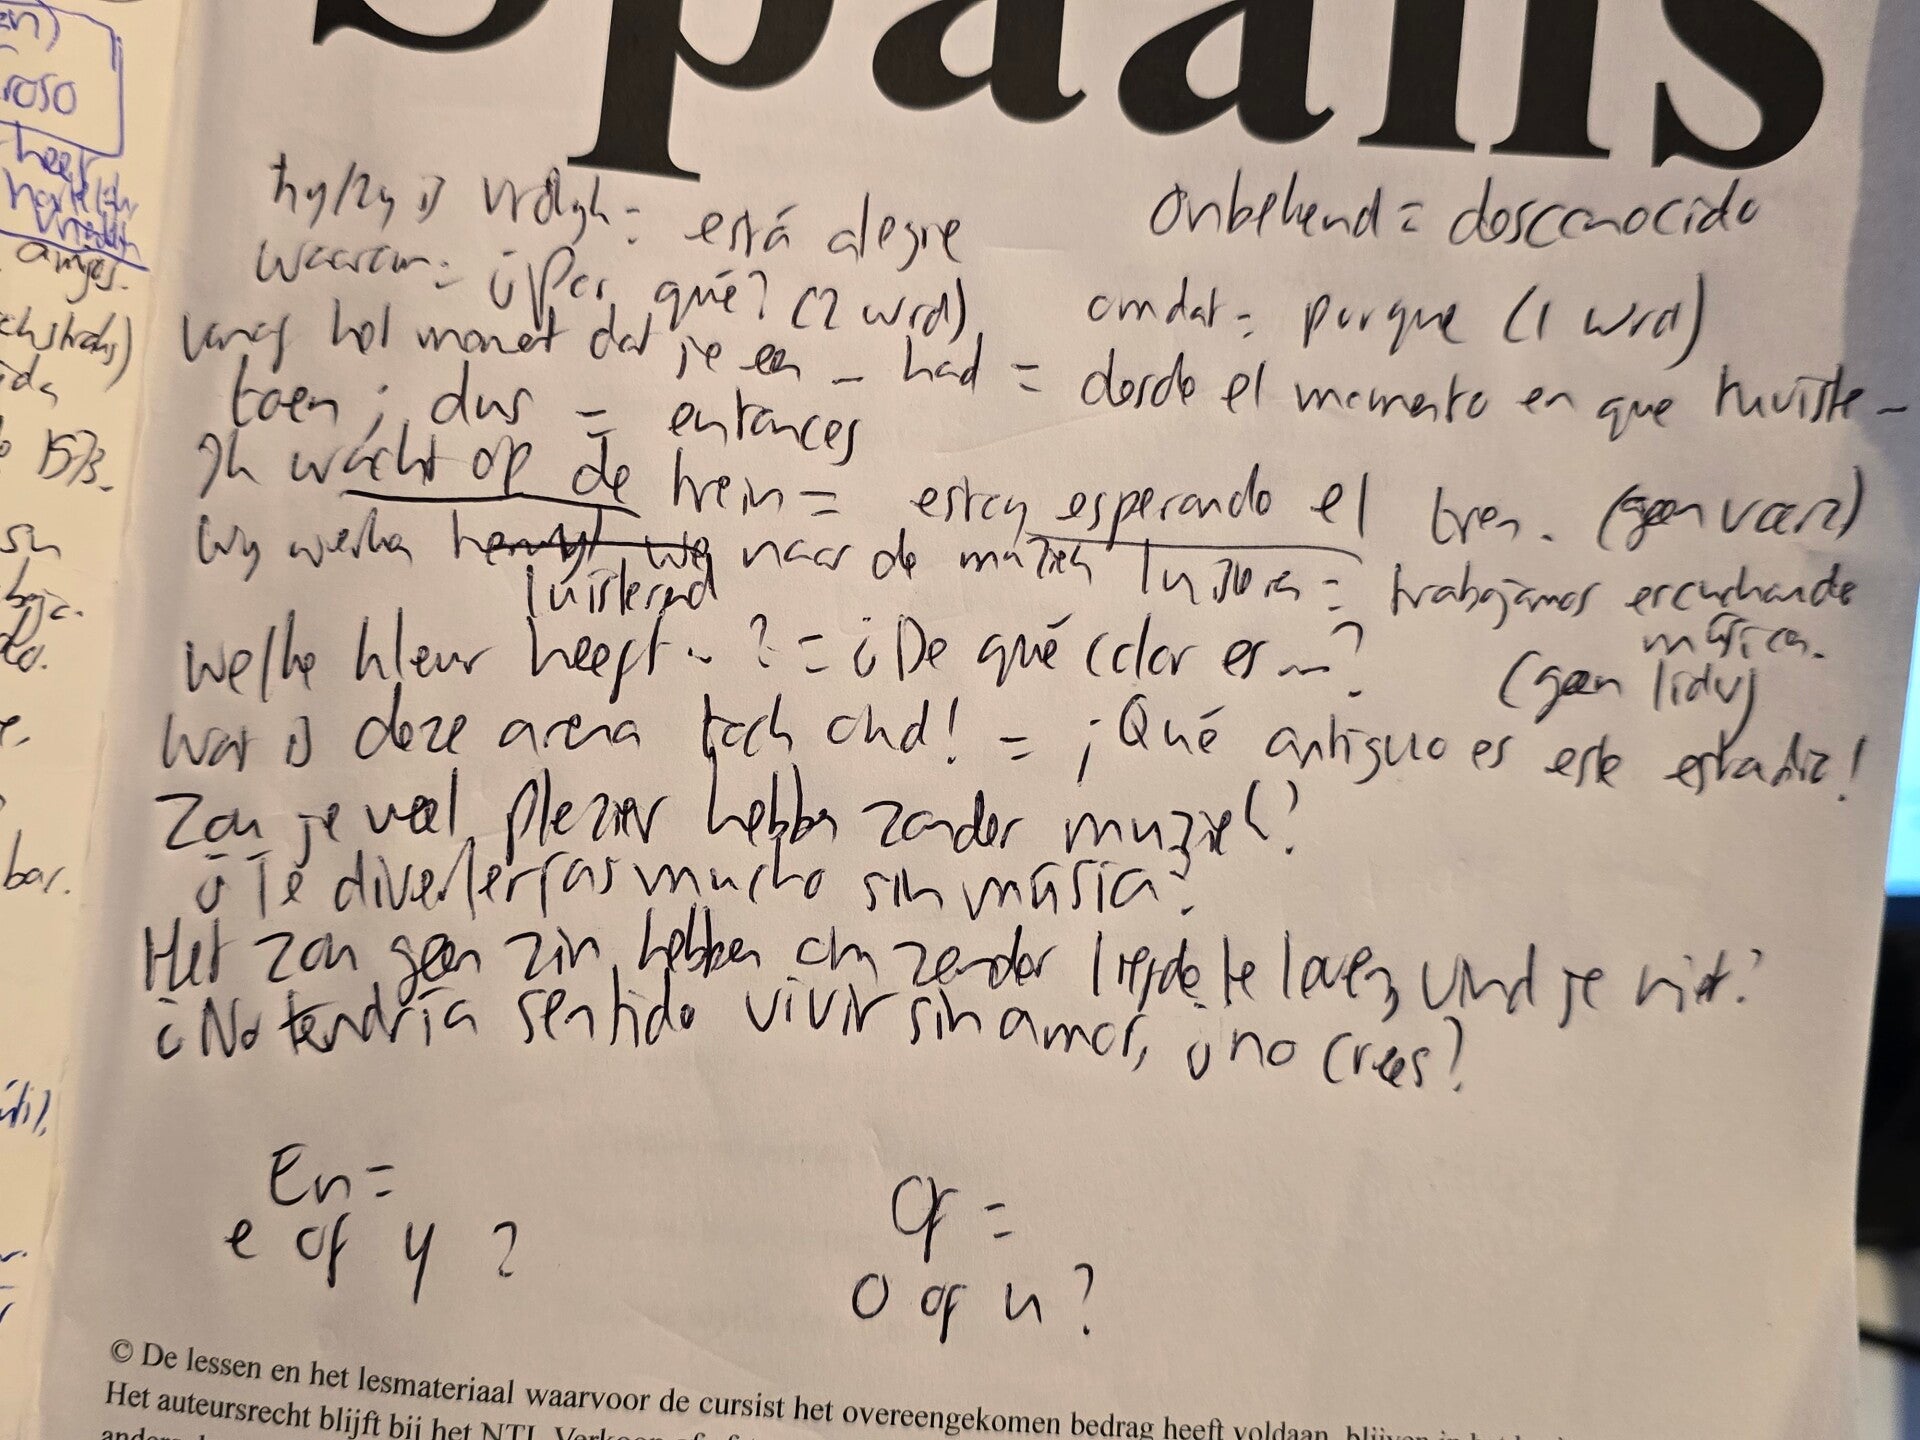 Spaans
hij/zij is vrolijk = está alegre
onbekend = desconocido
waarom = ¿Por qué? (2 wrd)
omdat = porque (1 wrd)
vanaf het moment dat je een _ had = desde el momento en que tuviste _
toen; dus = entonces
Ik wacht op de trein = estoy esperando el tren. (geen voorz)
Wij werken naar de muziek luisteren = trabajamos escuchando
luisterend
música.
(geen lidw)
Welke kleur heeft ...? = ¿De qué color es ...?
Wat is deze arena toch oud! = ¡Qué antiguo es este estadio!
Zou je veel plezier hebben zonder muziek?
¿Te divertirías mucho sin música?
Het zou geen zin hebben om zonder liefde te leven, vind je niet?
¿No tendría sentido vivir sin amor, ¿no crees?
En =
e of y ?
Of =
o of u ?
© De lessen en het lesmateriaal waarvoor de cursist het overeengekomen bedrag heeft voldaan, blijven in het
Het auteursrecht blijft bij het NTI.
roso
heel
amigos.
1573.
su
bar.